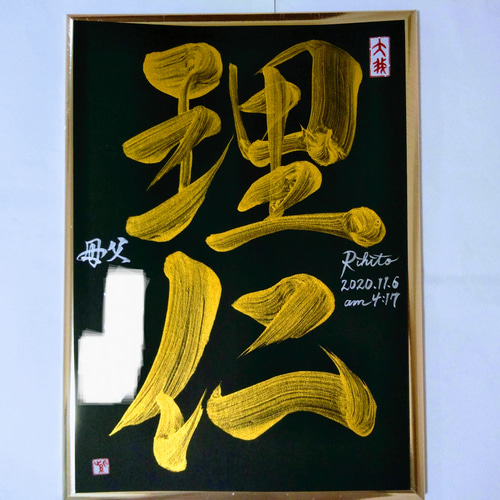 理仁
Rihito
2020.11.6
am 4:17
父
母